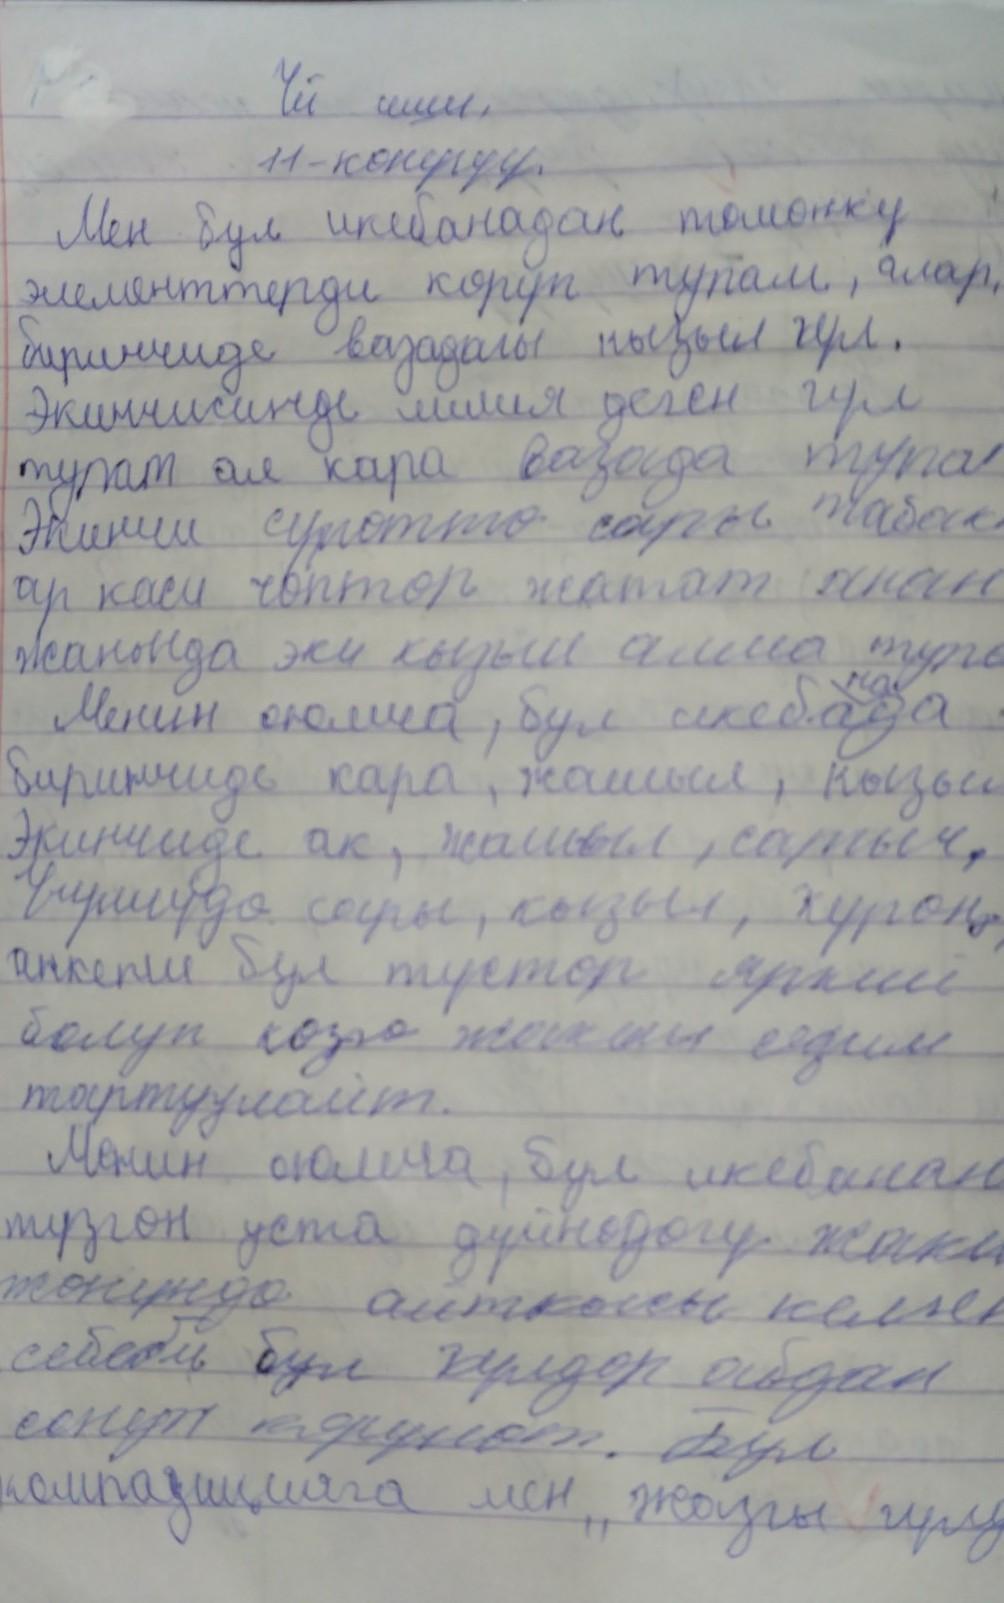 Үй иши.
11-көнүгүү.
Мен бул икебанадан томонку
элементтерди коруп турам, алар,
биринчиде вазадагы кызыл гул.
Экинчисинде лилия деген гул
турат ал кара вазада тура
Экинчи суротто сары табак
ар касы чоптор жатат анан
жанында эки кызыл алма тура
Менин оюмча, бул икебанада
биринчиде кара, жашыл, кызыл
Экинчиде ак, жашыл, саргыч,
Учунчудо сары, кызыл, курон,
анкени бул тустор яркий
болуп козго жакшы сезим
тартуулайт.
Менин оюмча, бул икебанан
тузгон уста дуйнодогу жакш
жонундо айткысы келген
себеби бул гулдор абдан
сонун корунот. Бул
компазицияга мен „Жазгы гулд